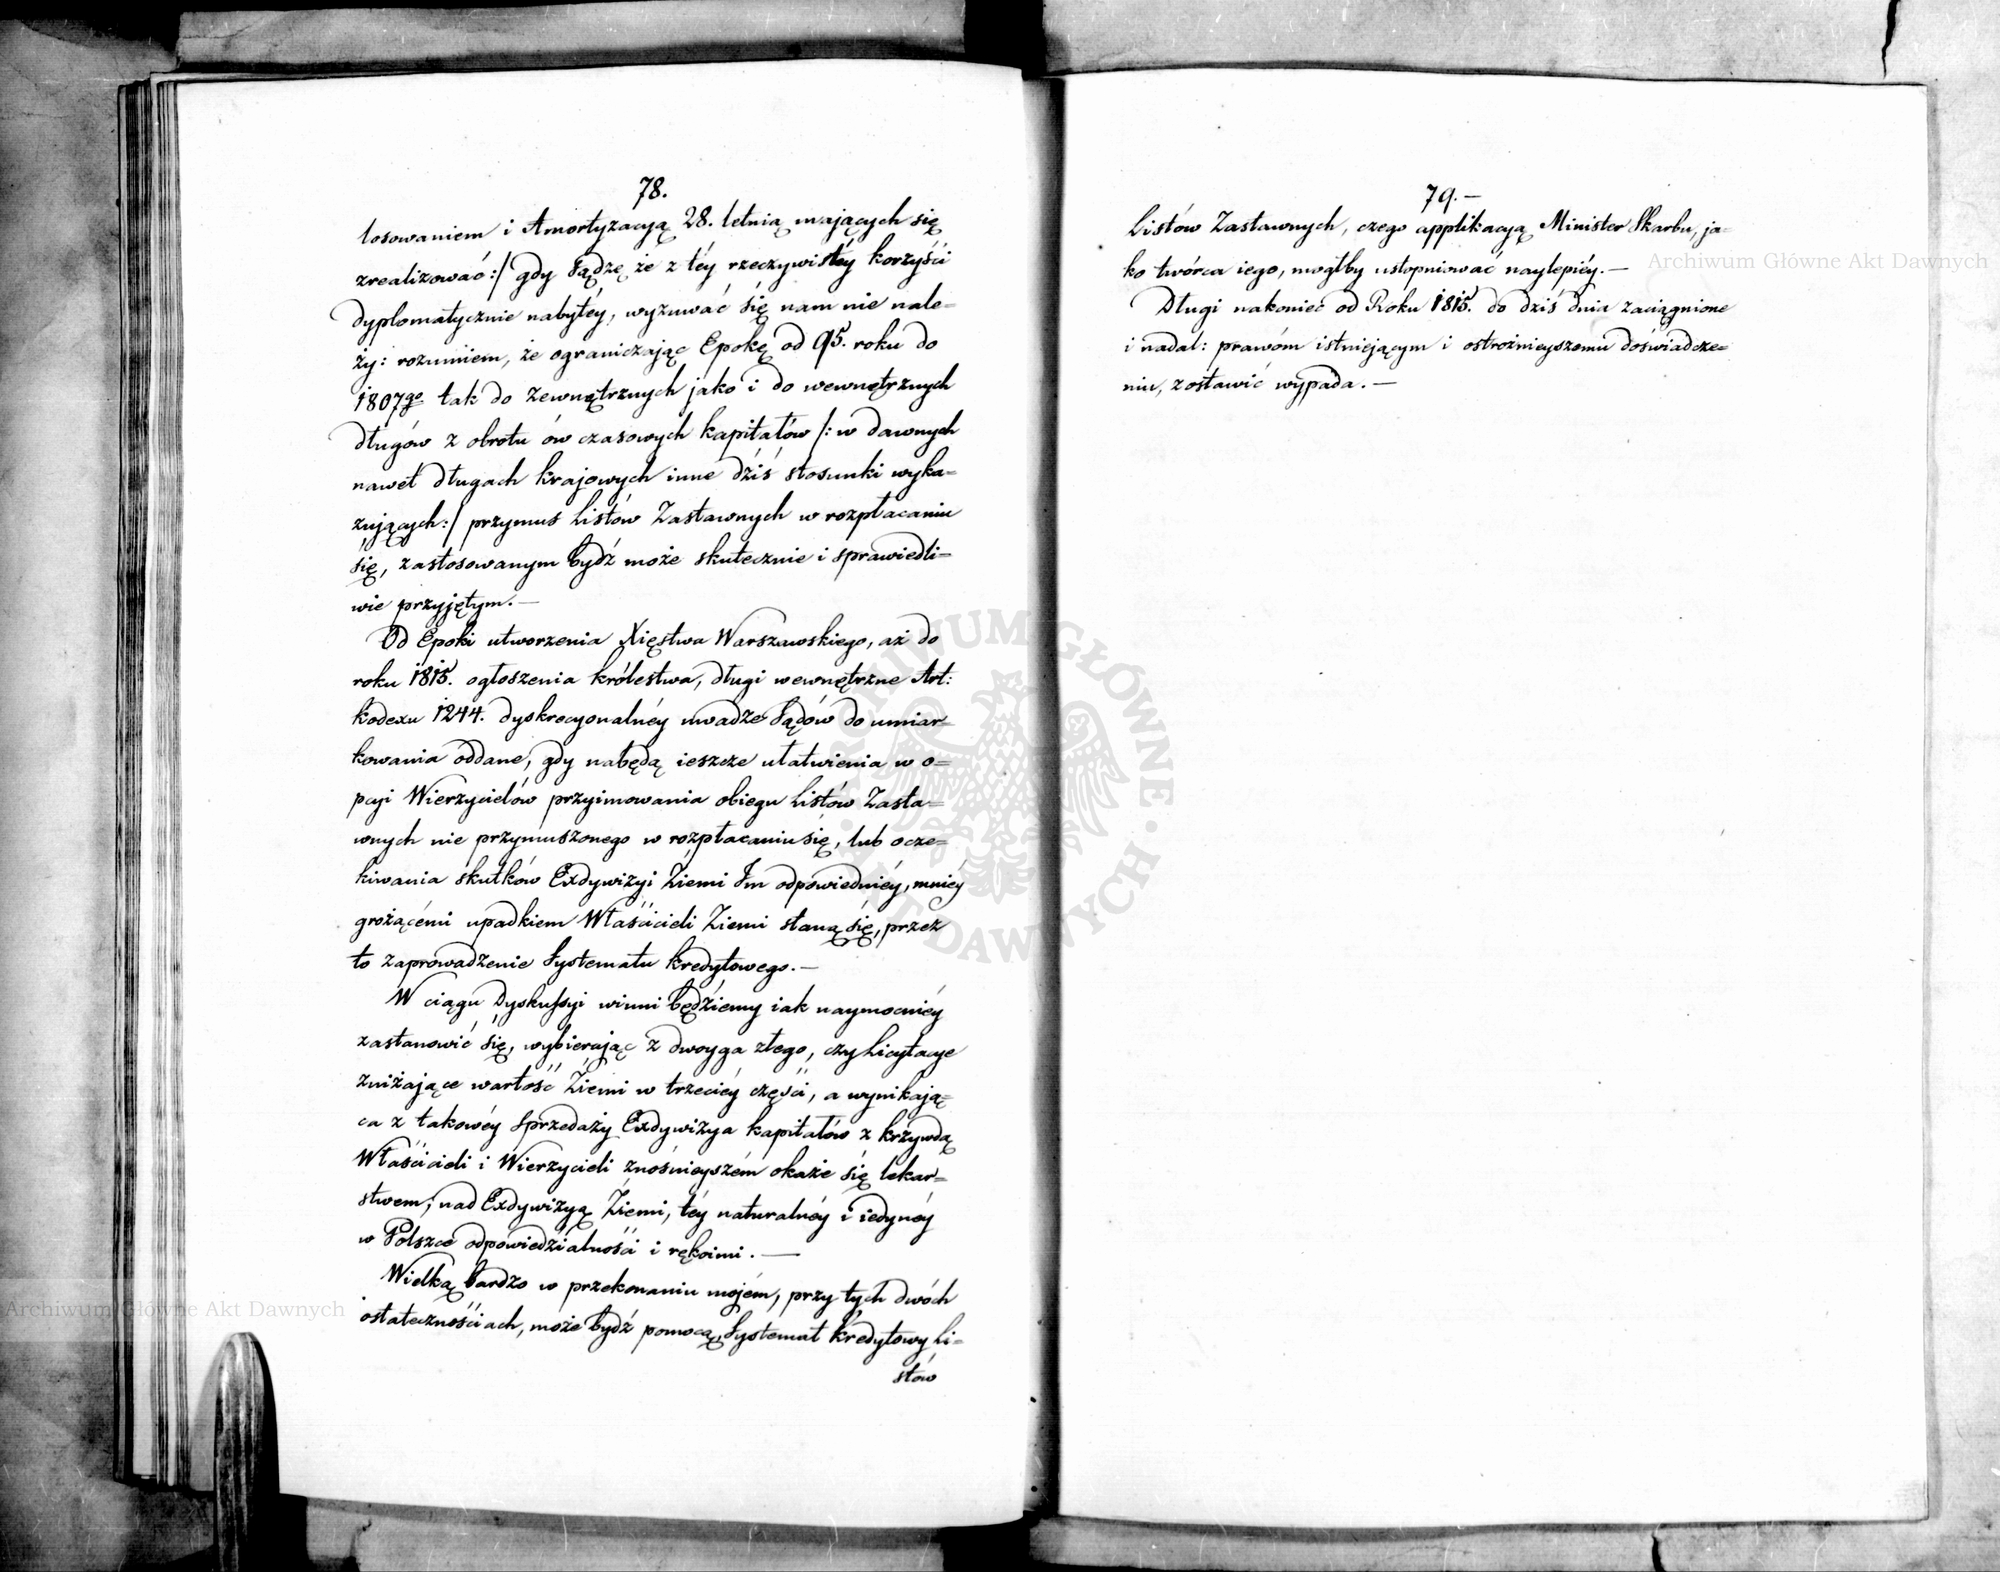 78.
losowaniem i Amortyzacyą 28. letnią mających się
zrealizować:/ gdy sądzę że z téy rzeczywistéy korzyści
dyplomatycznie nabytéy, wyzuwać się nam nie nale=
ży: rozumiem, że ograniczając Epokę od 95. roku do
1807go tak do zewnętrznych jako i do wewnętrznych
długów z obrotu ów czasowych kapitałów /: w dawnych
nawet długach krajowych inne dziś stosunki wyka=
zujących:/ przymus Listów Zastawnych w rozpłacaniu
się, zastósowanym bydź może skutecznie i sprawiedli=
wie przyjętym.—
Od Epoki utworzenia Xięstwa Warszawskiego, aż do
roku 1815. ogłoszenia królestwa, długi wewnętrzne Art:
kodexu 1244. dyskrecyonalnéy uwadze Sądów do umiar=
kowania oddane, gdy nabędą ieszcze ułatwienia w o=
pcyi Wierzycielów przyimowania obiegu Listów Zasta=
wnych nie przymuszonego w rozpłacaniu się, lub ocze=
kiwania skutków Exdywizyi Ziemi Im odpowiednićy, mniéy
grożącémi upadkiem Właścicieli Ziemi staną się, przez
to zaprowadzenie Systematu kredytowego.—
W ciągu dyskussyi winni będziemy iak naymocniéy
zastanowić się, wybierając z dwoyga złego, czy Licytacye
zniżające wartość Ziemi w trzeciéy części, a wynikają=
ca z takowéy sprzedaży Exdywizya kapitałów z krzywdą
Właścicieli i Wierzycieli znośnieyszém okaże się lekar=
stwem, nad Exdywizyą Ziemi, téy naturalnéy i iedynéy
w Polszce odpowiedzialności i rękoimi.—
Wielką bardzo w przekonaniu mojém, przy tych dwóch
ostatecznościach, może bydź pomocą, Systemat kredytowy Li=
stów
79.—
Listów Zastawnych, czego applikacyą Minister Skarbu, ja=
ko twórca iego, mogłby ustopniować naylepiéy.—
Długi nakoniec od Roku 1815. do dziś dnia zaciągnione
i nadal: prawóm istniejącym i ostrożnieyszemu doświadcze=
niu, zostawić wypada.—
Archiwum Główne Akt Dawnych
Archiwum Główne Akt Dawnych
ARCHIWUM GŁÓWNE
AKT DAWNYCH